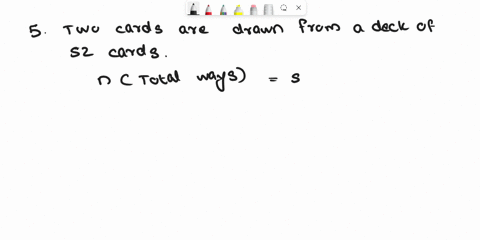 5. Two cards are drawn from a deck of
52 cards.
n ( Total ways) = s